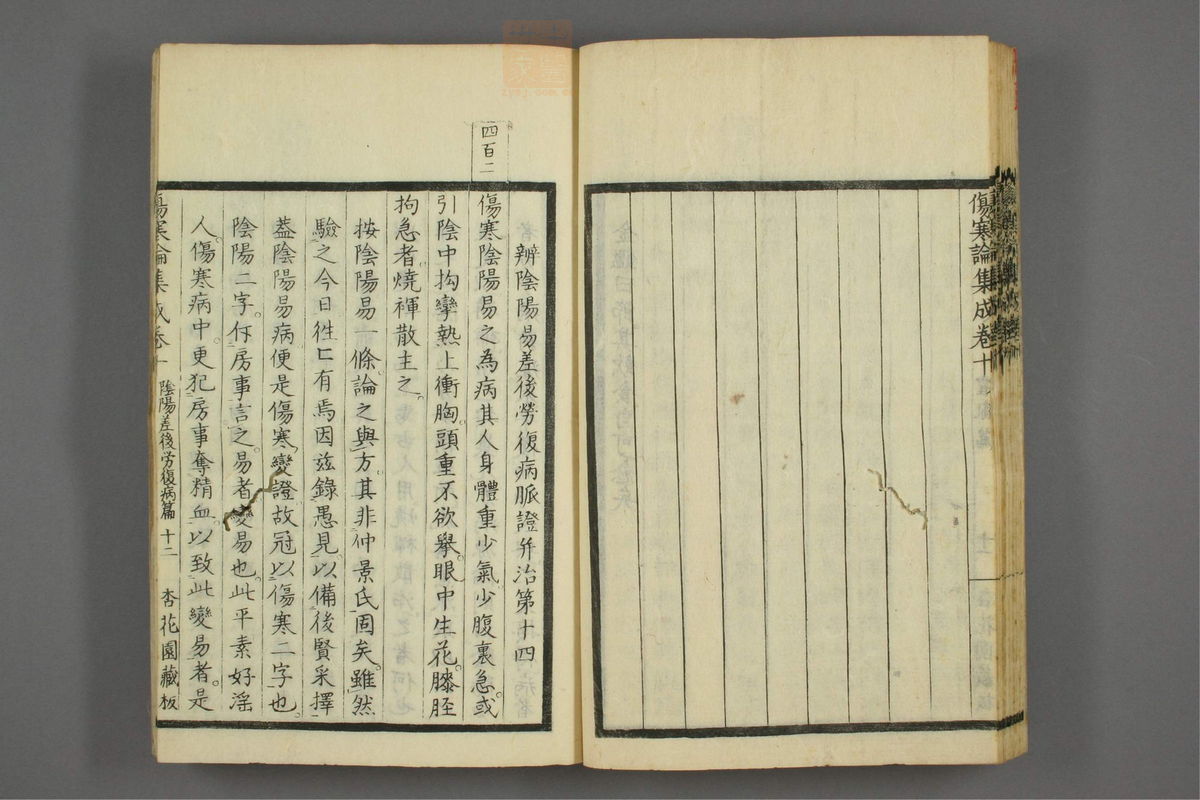 傷寒論集成卷十
四百二
辨陰陽易差後勞復病脈證并治第十四
傷寒陰陽易之為病其人身體重少氣少腹裏急。或
引陰中拘攣熱上衝胸。頭重不欲擧。眼中生花。膝脛
拘急者。燒褌散主之。
按陰陽易一條。論之與方。其非仲景氏固矣。雖然
驗之今日往匕有焉因玆錄愚見。以備後賢采擇
蓋陰陽易病便是傷寒變證故冠以傷寒二字也。
陰陽二字。仍房事言之。易者變易也。此平素好淫
人。傷寒病中。更犯房事奪精血。以致此變易者。是
傷寒論集成卷十 陰陽差後労復病篇 十二 杏花園藏板